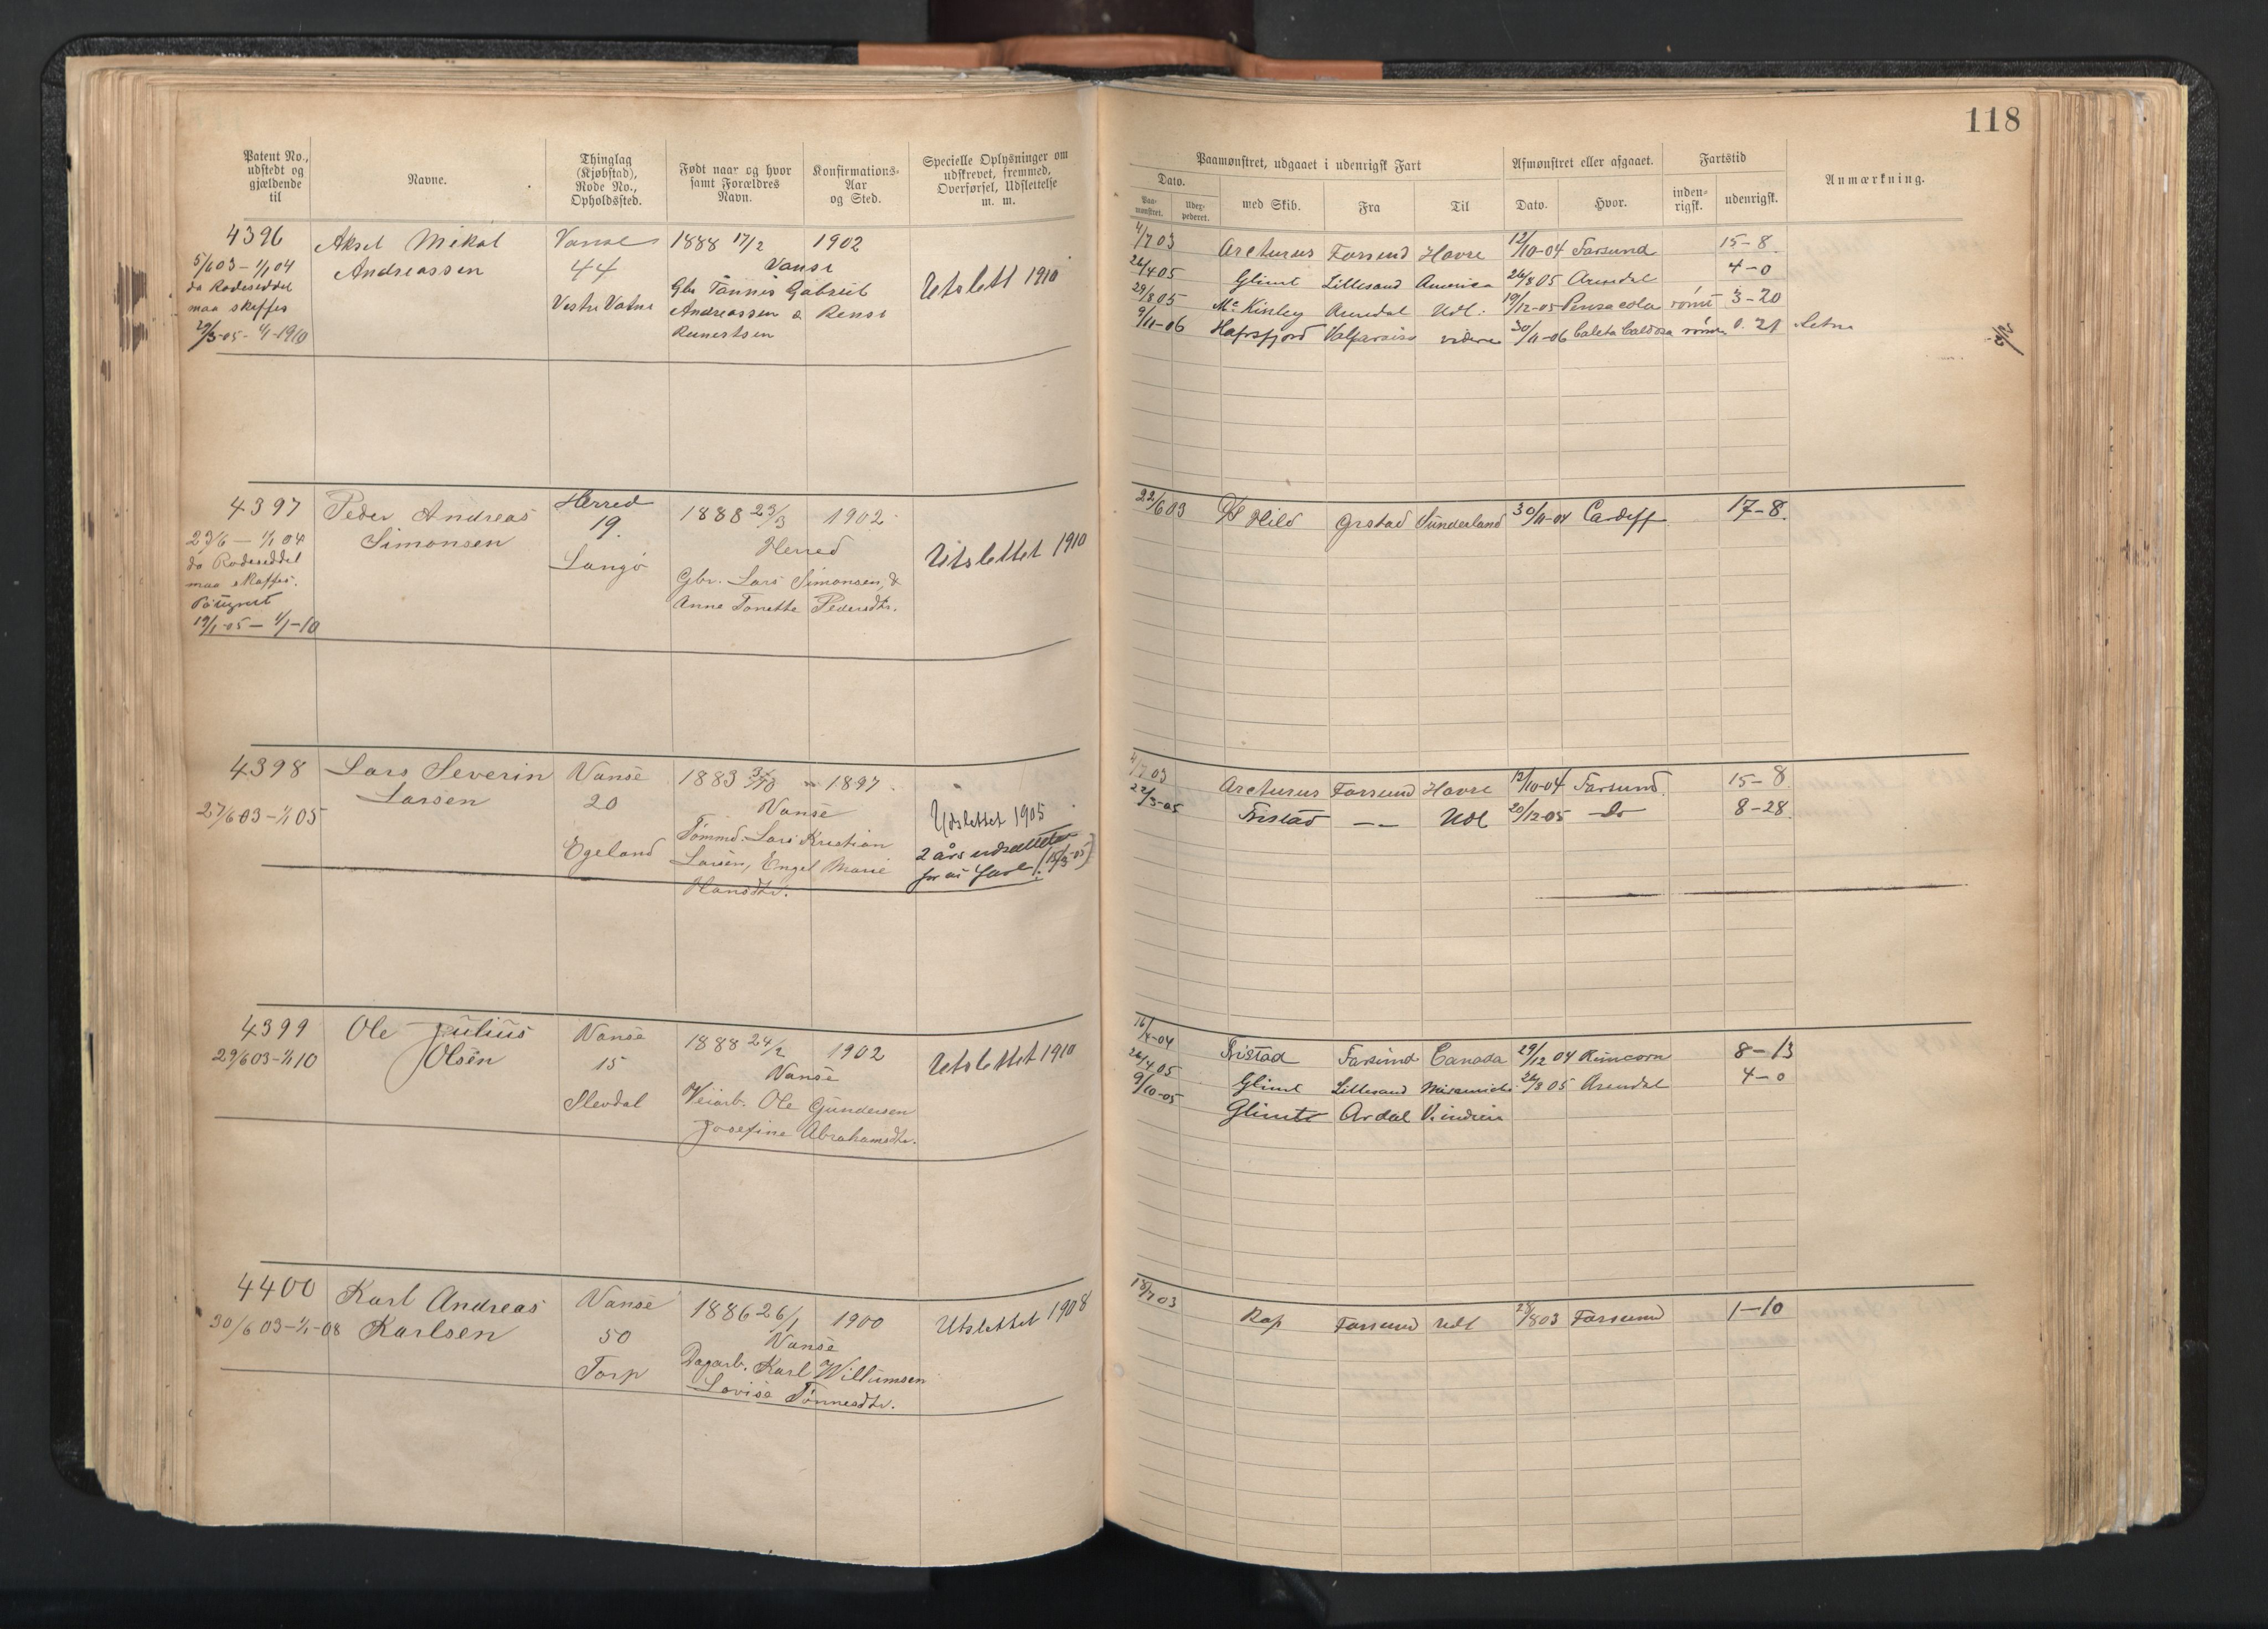 118
Patent No., udstedt og gjældende til
Navne.
Thinglag (Kjøbstad), Rode No., Opholdssted.
Født naar og hvor samt Forældres Navn.
Konfirmations-Aar og Sted.
Specielle Oplysninger om udskrevet, fremmed, Overførsel, Udslettelse m. m.
Paamønstret, udgaaet i udenrigsk Fart
Afmønstret eller afgaaet.
Fartstid
Anmærkning.
Dato.
Paa-mønstret.
Udex-pederet.
med Skib.
Fra
Til
Dato.
Hvor.
inden-rigsk.
udenrigsk.
4396
5/6 03 – 1/1 04
da Rodeseddel
maa skaffes
Aksel Mikal
Andreassen
Vanse
44
Vestre Vatne
1888 17/2
1902
Vanse
Gbr Tønnes Gabriel
Andreassen &
Reinertsen
Utslett 1910
4/7 03 Arcturus Farsund Havre 12/10-04 Farsund 15-8
26/4 05 Glimt Lillesand America 26/8 05 Arendal 4-0
29/8 05 Mc Kinley Arendal Udl. 19/12-05 Pensacola rømt 3-20
9/11-06 Hafrsfjord Valparaiso videre 30/11-06 Caleta Caldosa 0.21
4397
23/6 – 1/1 04
da Rodeseddel
maa skaffes.
19/1-05 – 1/1-10
Peder Andreas
Simonsen
Herred
19.
Langø
1888 23/3
1902
Herred
Gbr. Lars Simonsen, &
Anne Tonette Pedersdtr.
Utslettet 1910
22/6 03 D/S Hild Grstad Sunderland 30/11-04 Cardiff 17-8.
4398
27/6 03 – 1/1 05
Lars Severin
Larsen
Vanse
20
Egeland
1883
1897
Vanse
Tømmd. Lars Kristian
Larsen, Engel Marie
Hansdtr.
Udslettet 1905
2 års udsættelse
4/7 03 Arcturus Farsund Havre 12/10-04 Farsund. 15-8
22/3-05 Fristad — Udl 20/12-05 do 8-28.
4399
29/6 03 – 1/1 10
Ole Julius
Olsen
Vanse
15
Slevdal
1888 24/2
1902
Vanse
Veiarb. Ole Gundersen
Josefine Abrahamsdtr.
Utslettet 1910
16/4-04 Fristad Farsund Canada 29/12 04 Runcorn 8-13
26/4 05 Glimt Lillesand Miramichi 26/8 05 Arendal 4-0
9/10-05 Glimt Ardal V.indien
4400
30/6 03 – 1/1-08
Karl Andreas
Karlsen
Vanse
50
Torp
1886 26/1
1900
Vanse
Dagarb. Karl Willumsen
Lovise Tønnesdtr.
Utslettet 1908
18/7 03 Rap Farsund Udl 28/8 03 Farsund 1-10